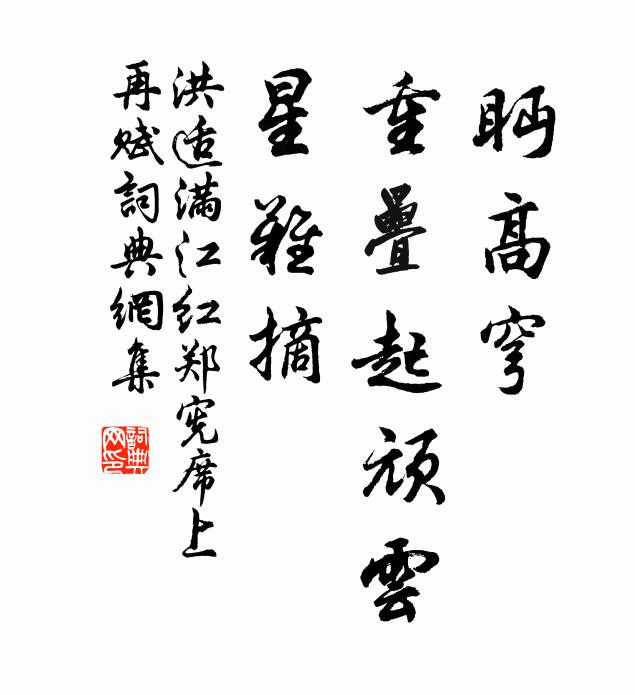 眄高穹
重疊起頑雲
星難摘
洪适满江红郑宪席上
再赋詞典網集
詞典
网印